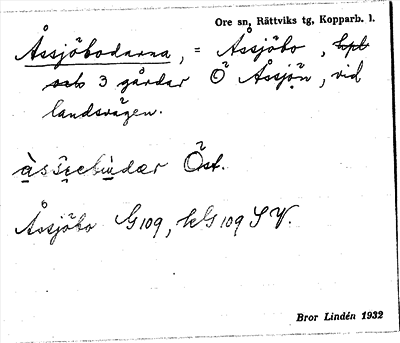 Ore sn, Rättviks tg, Kopparb. l.
Åssjöbodarna, = Åssjöbo,
3 gårdar Ö Åssjön, vid
landsvägen.
Öst.
Åssjöbo G 109, kG 109 SV.
Bror Lindén 1932